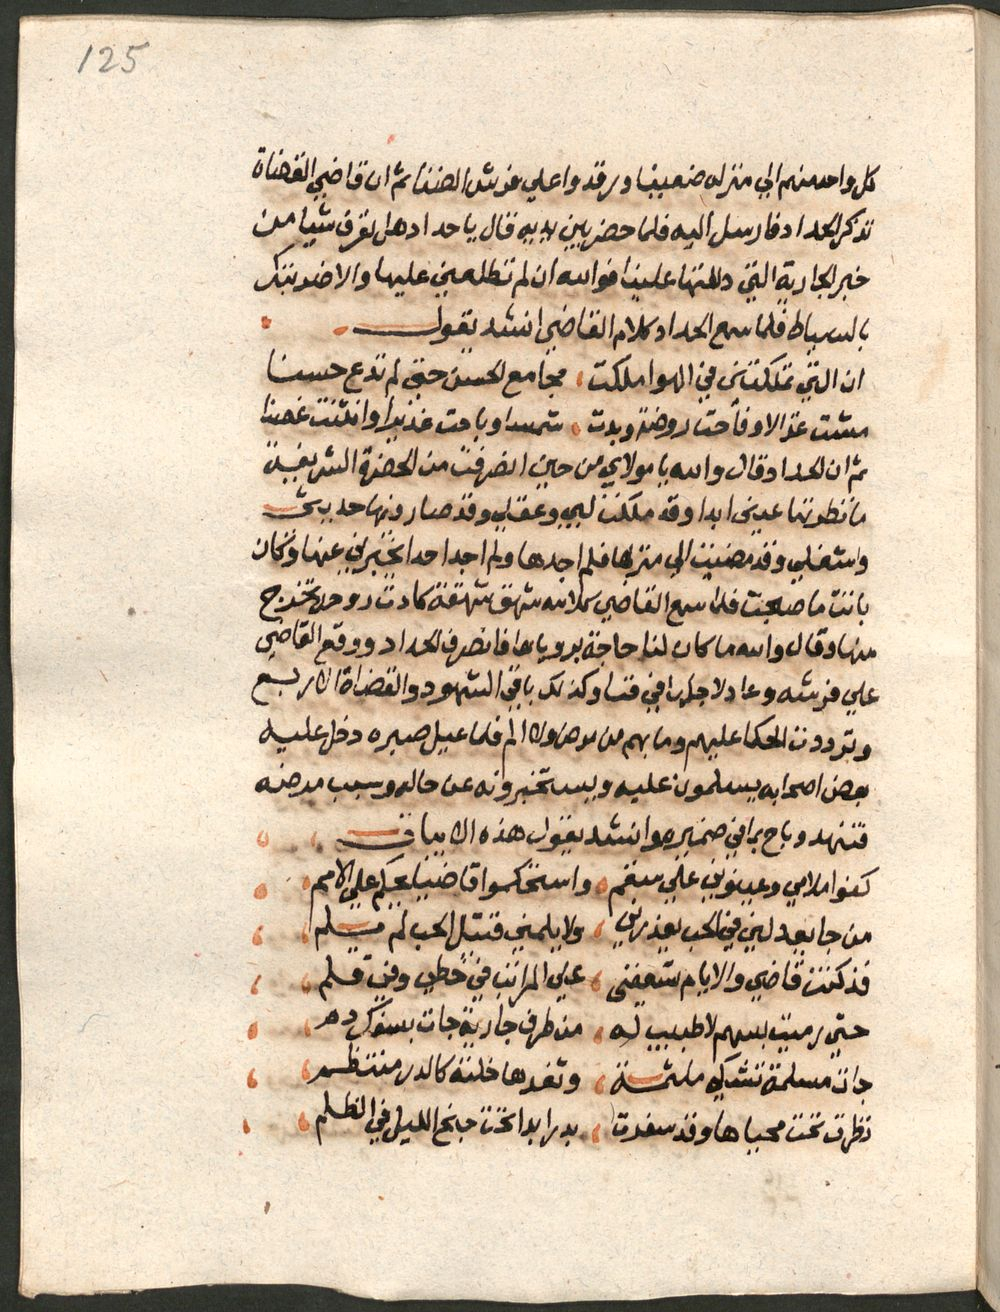 125
كل واحد منهم الي منزله ضعيفا ورقدوا علي فرش الضنا ثم ان قاضي القضاة
تذكر الحداد فارسل اليه فلما حضر بين يديه قال يا حداد هل تعرف شيا من
خبر الجارية التي دلتها علينا فوالله ان لم تطلعني عليها والا ضربتك
بالسياط فلما سمع الحداد كلام القاضي انشد يقول
ان التي تملكتني في الهوا ملكت مجامع الحسن حتي لم تدع حسنا
مشت غزالا وفاحت روضة وبدت شمسا وباحت غديرا وانثنت غصنا
ثم ان الحداد قال والله يا مولاي من حين انصرفت من الحضرة الشريفة
ما نظرتها عيني ابدا وقد ملكت لبي وعقلي وقد صار فيها حديثي
واشغلي وقد مضيت الي منزلها فلم اجدها ولم اجد احدا يخبرني عنها وكان
باتت ما صبحت فلما سمع القاضي كلامه شهق شهقة كادت روحه تخرج
منها وقال والله ما كان لنا حاجة برؤياها فانصرف الحداد ووقع القاضي
علي فرشه وعاد لاجلها في فنا وكذلك باقي الشهود والقضاة الاربع
وترددت الحكما عليهم وما بهم من مرض ولا الم فلما عيل صبره دخل عليه
بعض اصحابه يسلمون عليه ويستخبرونه عن حاله وسبب مرضه
فتنهد وباح بما في ضميره وانشد يقول هذه الابيات
كفوا ملامي وعينوني علي سقم واستحكموا قاضيا يحكم علي الامم
من جا يعدلني في الحب يعذرني ولا يلمني قتيل الحب لم يسلم
قد كنت قاضي والايام تسعفني علي المراتب في خطي وفي قلم
حتي رميت بسهم لا طبيب له من طرف جارية جات بسفك دم
جات مسلمة تشكي ملثمة وثغرها خلته كالدر منتظم
نظرت تحت محياها وقد سفرت بدرا بدا تحت جنح الليل في الظلم